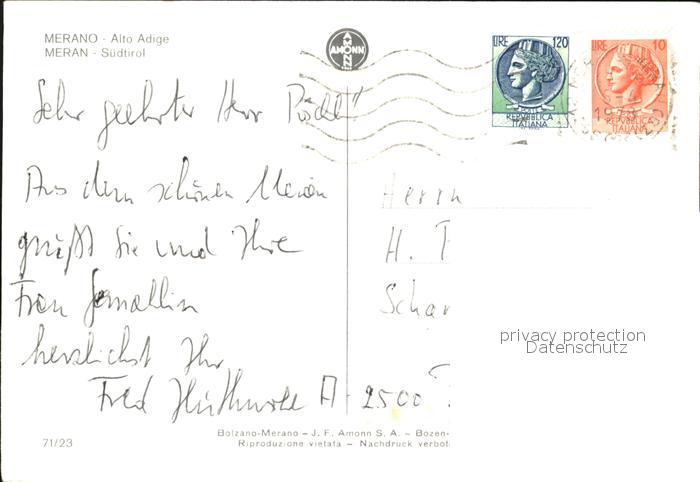 MERANO - Alto Adige
MERAN - Südtirol
AMONN
LIRE 120
POSTE
REPVBBLICA
ITALIANA
LIRE 10
REPVBBLICA
ITALIANA
Sehr geehrter Herr
Aus dem schönen Meran
grüßt Sie und Ihre
Frau Gemahlin
herzlichst Ihr
Fred
Herrn
H.
Schar
A-2500
privacy protection
Datenschutz
Bolzano-Merano – J. F. Amonn S. A. – Bozen-
Riproduzione vietata – Nachdruck verbot
71/23